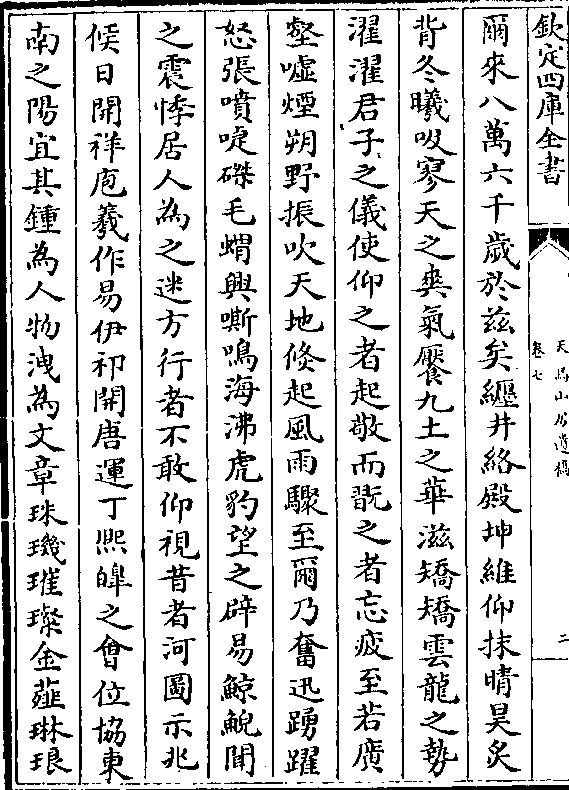 欽定四庫全書
天馬山房遺稿
卷七
二
爾來八萬六千歲於兹矣纏井絡殿坤維仰抹晴昊炙
背冬曦吸寥天之爽氣饜九土之華滋矯矯雲龍之勢
濯濯君子之儀使仰之者起敬而翫之者忘疲至若廣
壑嘘煙朔野振吹天地倐起風雨驟至爾乃奮迅踴躍
怒張噴嚏磔毛蝟興嘶鳴海沸虎豹望之辟易鯨鯢聞
之震悸居人為之迷方行者不敢仰視昔者河圖示兆
候日開祥庖羲作易伊祁開唐運丁熙皥之會位協東
南之陽宜其鍾為人物洩為文章珠璣璀璨金薤琳琅